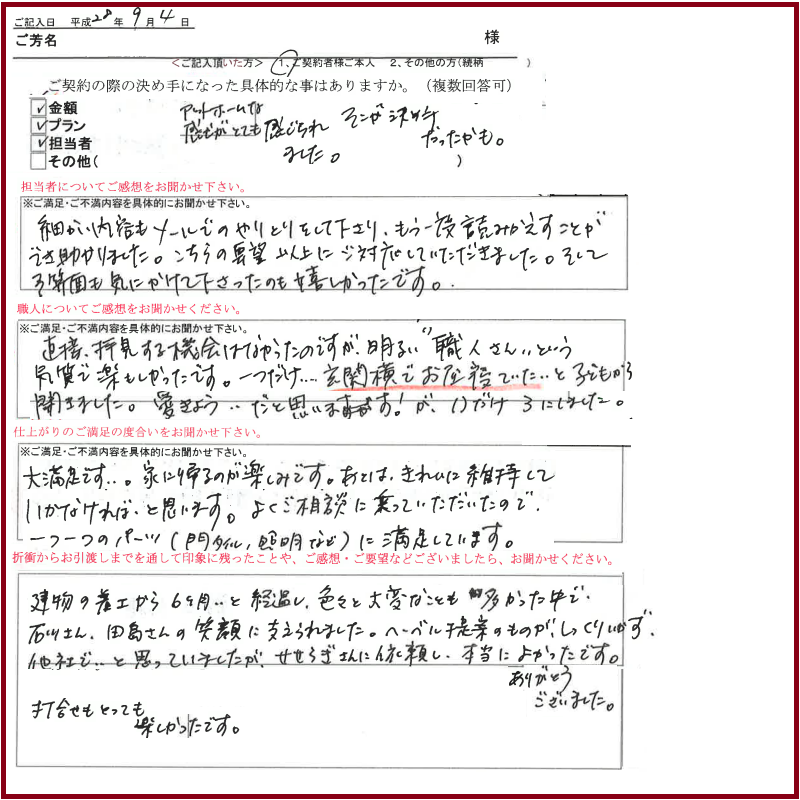 ご記入日 平成28年9月4日
ご芳名 様
<ご記入頂いた方> 1、ご契約者様ご本人 2、その他の方(続柄 )
ご契約の際の決め手になった具体的な事はありますか。（複数回答可）
金額
プラン
担当者
その他( )
アットホームな
感じがとても感じられ
ました。
そこが決め手
だったかも。
担当者についてご感想をお聞かせ下さい。
※ご満足・ご不満内容を具体的にお聞かせ下さい。
細かい内容もメールでのやりとりをして下さり、もう一度読みかえすことが
でき助かりました。こちらの要望以上にご対応していただきました。そして
予算面も気にかけて下さったのも嬉しかったです。
職人についてご感想をお聞かせください。
※ご満足・ご不満内容を具体的にお聞かせ下さい。
直接、拝見する機会はなかったのですが、明るい"職人さん"という
気質で楽もしかったです。一つだけ…玄関横でお昼寝でいた…と子どもから
聞きました。愛きょう…だと思います!が、1)だけ 3にしました。
仕上がりのご満足の度合いをお聞かせ下さい。
※ご満足・ご不満内容を具体的にお聞かせ下さい。
大満足です…。家に帰るのが楽しみです。あとは、きれいに維持して
いかなければ…と思います。よくご相談に乗っていただいたので、
一つ一つのパーツ(門タイル、照明など)に満足しています。
折衝からお引渡しまでを通して印象に残ったことや、ご感想・ご要望などございましたら、お聞かせください。
建物の着工から6ヶ月…と経過し、色々と大変なことも多かった中で、
石川さん、田島さんの笑顔に支えられました。ヘーベル提案のものが、しっくりいかず、
他社で…と思っていましたが、せせらぎさんに依頼し、本当によかったです。
ありがとう
ございました。
打合せもとっても
楽しかったです。